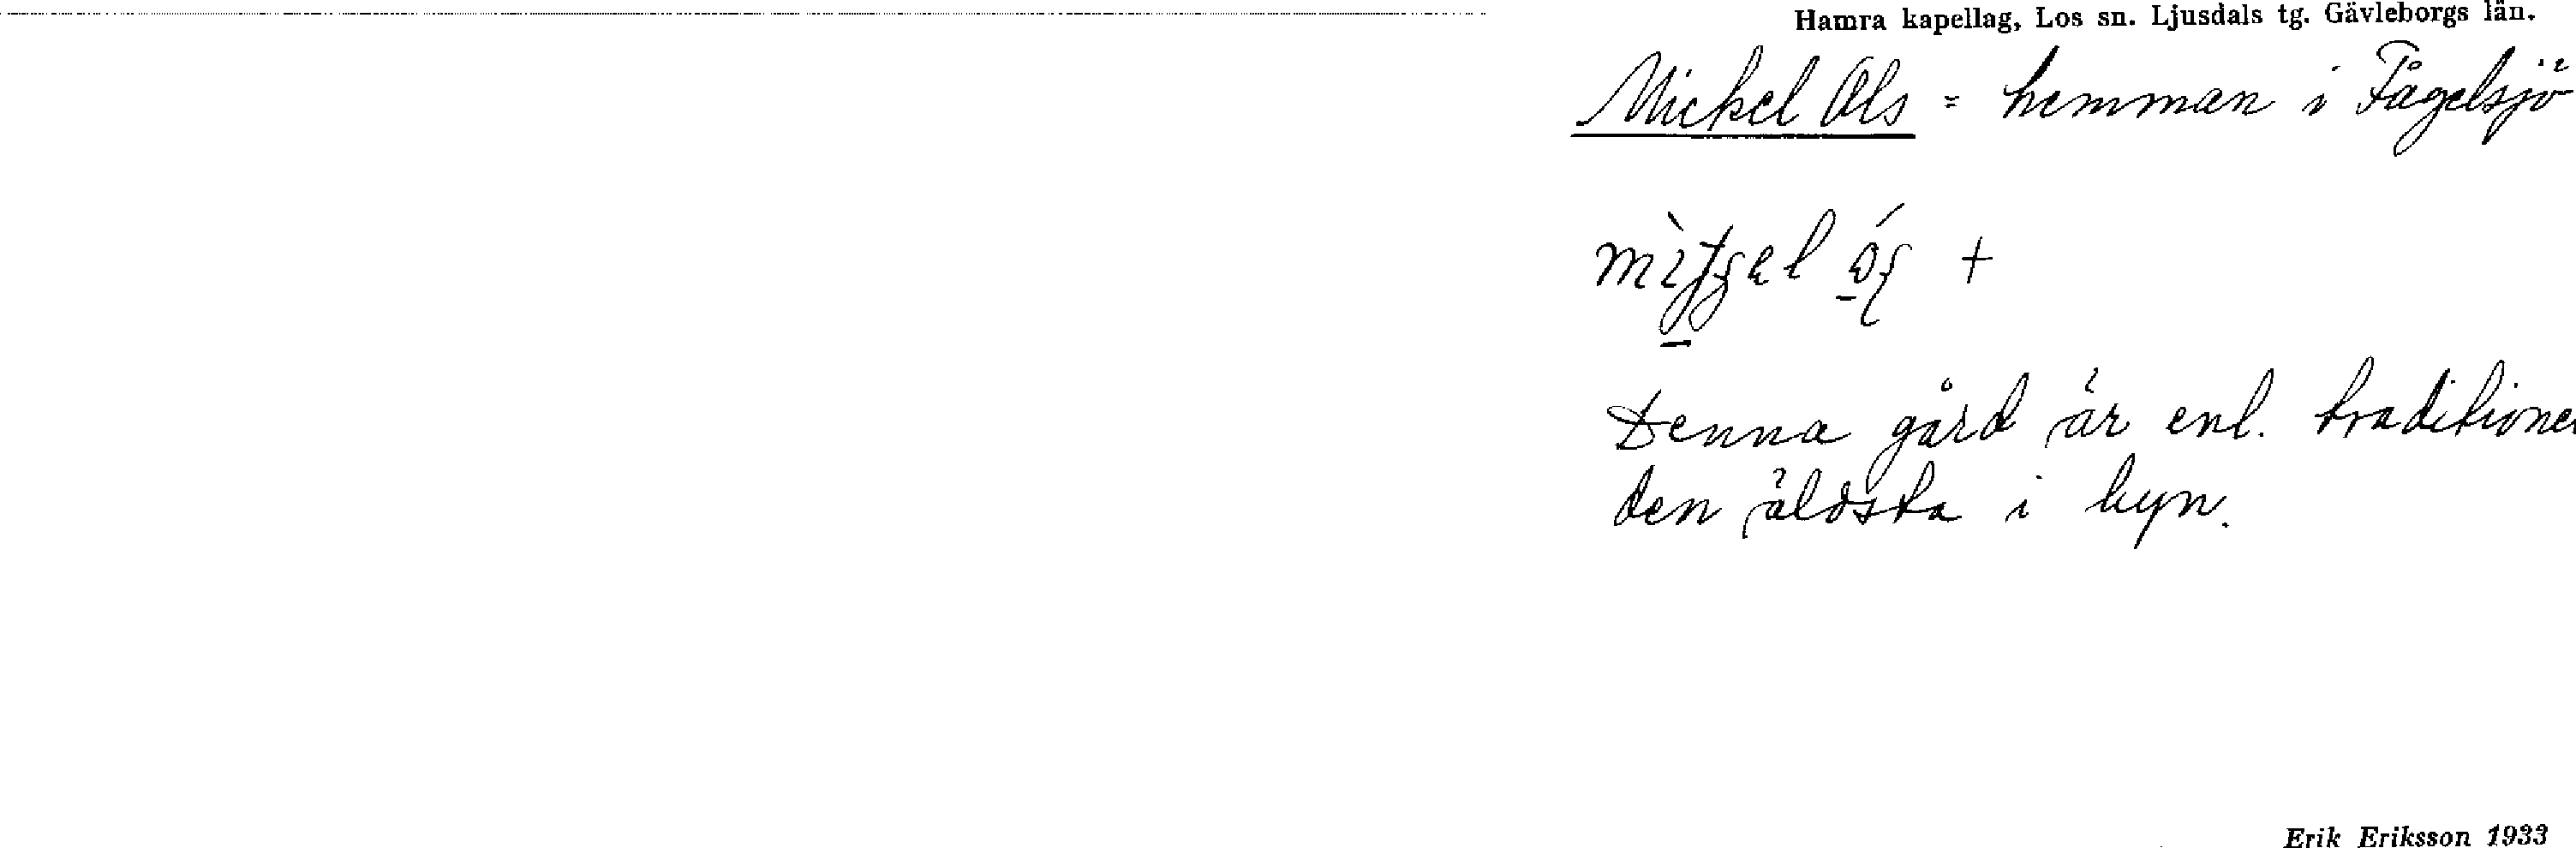 Hamra kapellag, Los sn. Ljusdals tg. Gävleborgs län.
Mickel Ols = hemman i Fågelsjö
+
Denna gård är enl. traditionen
den äldsta i byn.
Erik Eriksson 1933